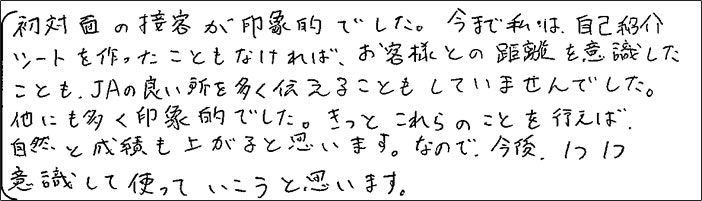 初対面の接客が印象的でした。今まで私は、自己紹介
シートを作ったこともなければ、お客様との距離を意識した
ことも、JAの良い所を多く伝えることもしていませんでした。
他にも多く印象的でした。きっとこれらのことを行えば、
自然と成績も上がると思います。なので、今後、1つ1つ
意識して使っていこうと思います。